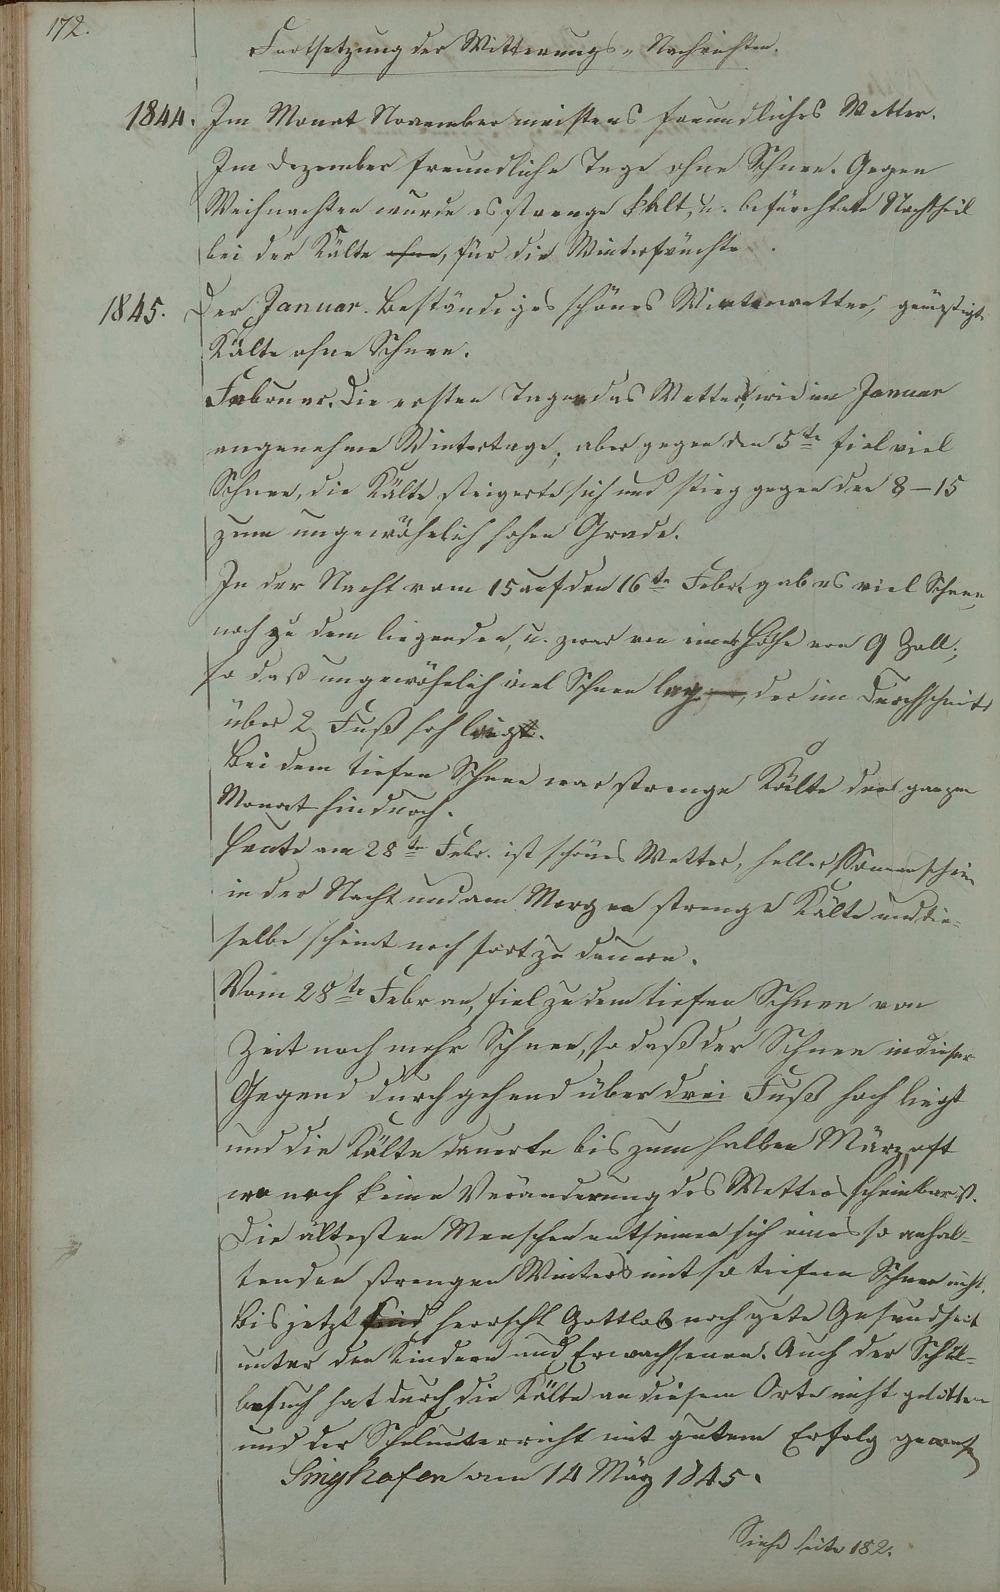 172.
Fortsetzung der Witterungs-Nachrichten.
1844. Im Monat November meistens freundliches Wetter.
Im Dezember freundliche Tage ohne Schnee. Gegen
Weihnachten wurde es strenge kalt, u. befürchtete Nachtheil
bei der Kälte ohne, für die Winterfrüchte.
1845. Der Januar. Beständiges schönes Winterwetter, gemäßigte
Kälte ohne Schnee.
Februar. Die ersten Tage das Wetter, wie im Januar
angenehme Wintertage; aber gegen den 5te fiel viel
Schnee, die Kälte steigerte sich und stieg gegen den 8-15
zum ungewöhnlich hohen Grade.
In der Nacht vom 15 auf den 16te Febr. gab es viel Schnee,
noch zu dem liegenden, u. zwar von einer Höhe von 9 Zoll;
so daß ungewöhnlich viel Schnee lag, der im Durchschnitt
über 2 Fuß hoch liegt.
Bei dem tiefen Schnee war strenge Kälte den ganzen
Monat hindurch.
Heute am 28te Febr. ist schönes Wetter, heller Sonnenschein
in der Nacht und am Morgen strenge Kälte und die-
selbe scheint noch fort zu dauern.
Vom 28te Febr an, fiel zu dem tiefen Schnee von
Zeit noch mehr Schnee, so daß der Schnee in dieser
Gegend durchgehend über drei Fuß hoch liegt
und die Kälte dauerte bis zum halben März, oft
wo noch keine Veränderung des Wetters scheinbar ist.
Die ältesten Menschen entsinnen sich eines so anhal-
tenden strengen Winters mit so tiefem Schnee nicht.
Bis jetzt sind herrscht Gottlob noch gute Gesundheit
unter den Kindern und Erwachsenen. Auch der Schul-
besuch hat durch die Kälte an diesem Orte nicht gelitten
und der Schulunterricht mit gutem Erfolg gewesen
Singhofen am 14 März 1845.
Siehe Seite 182.